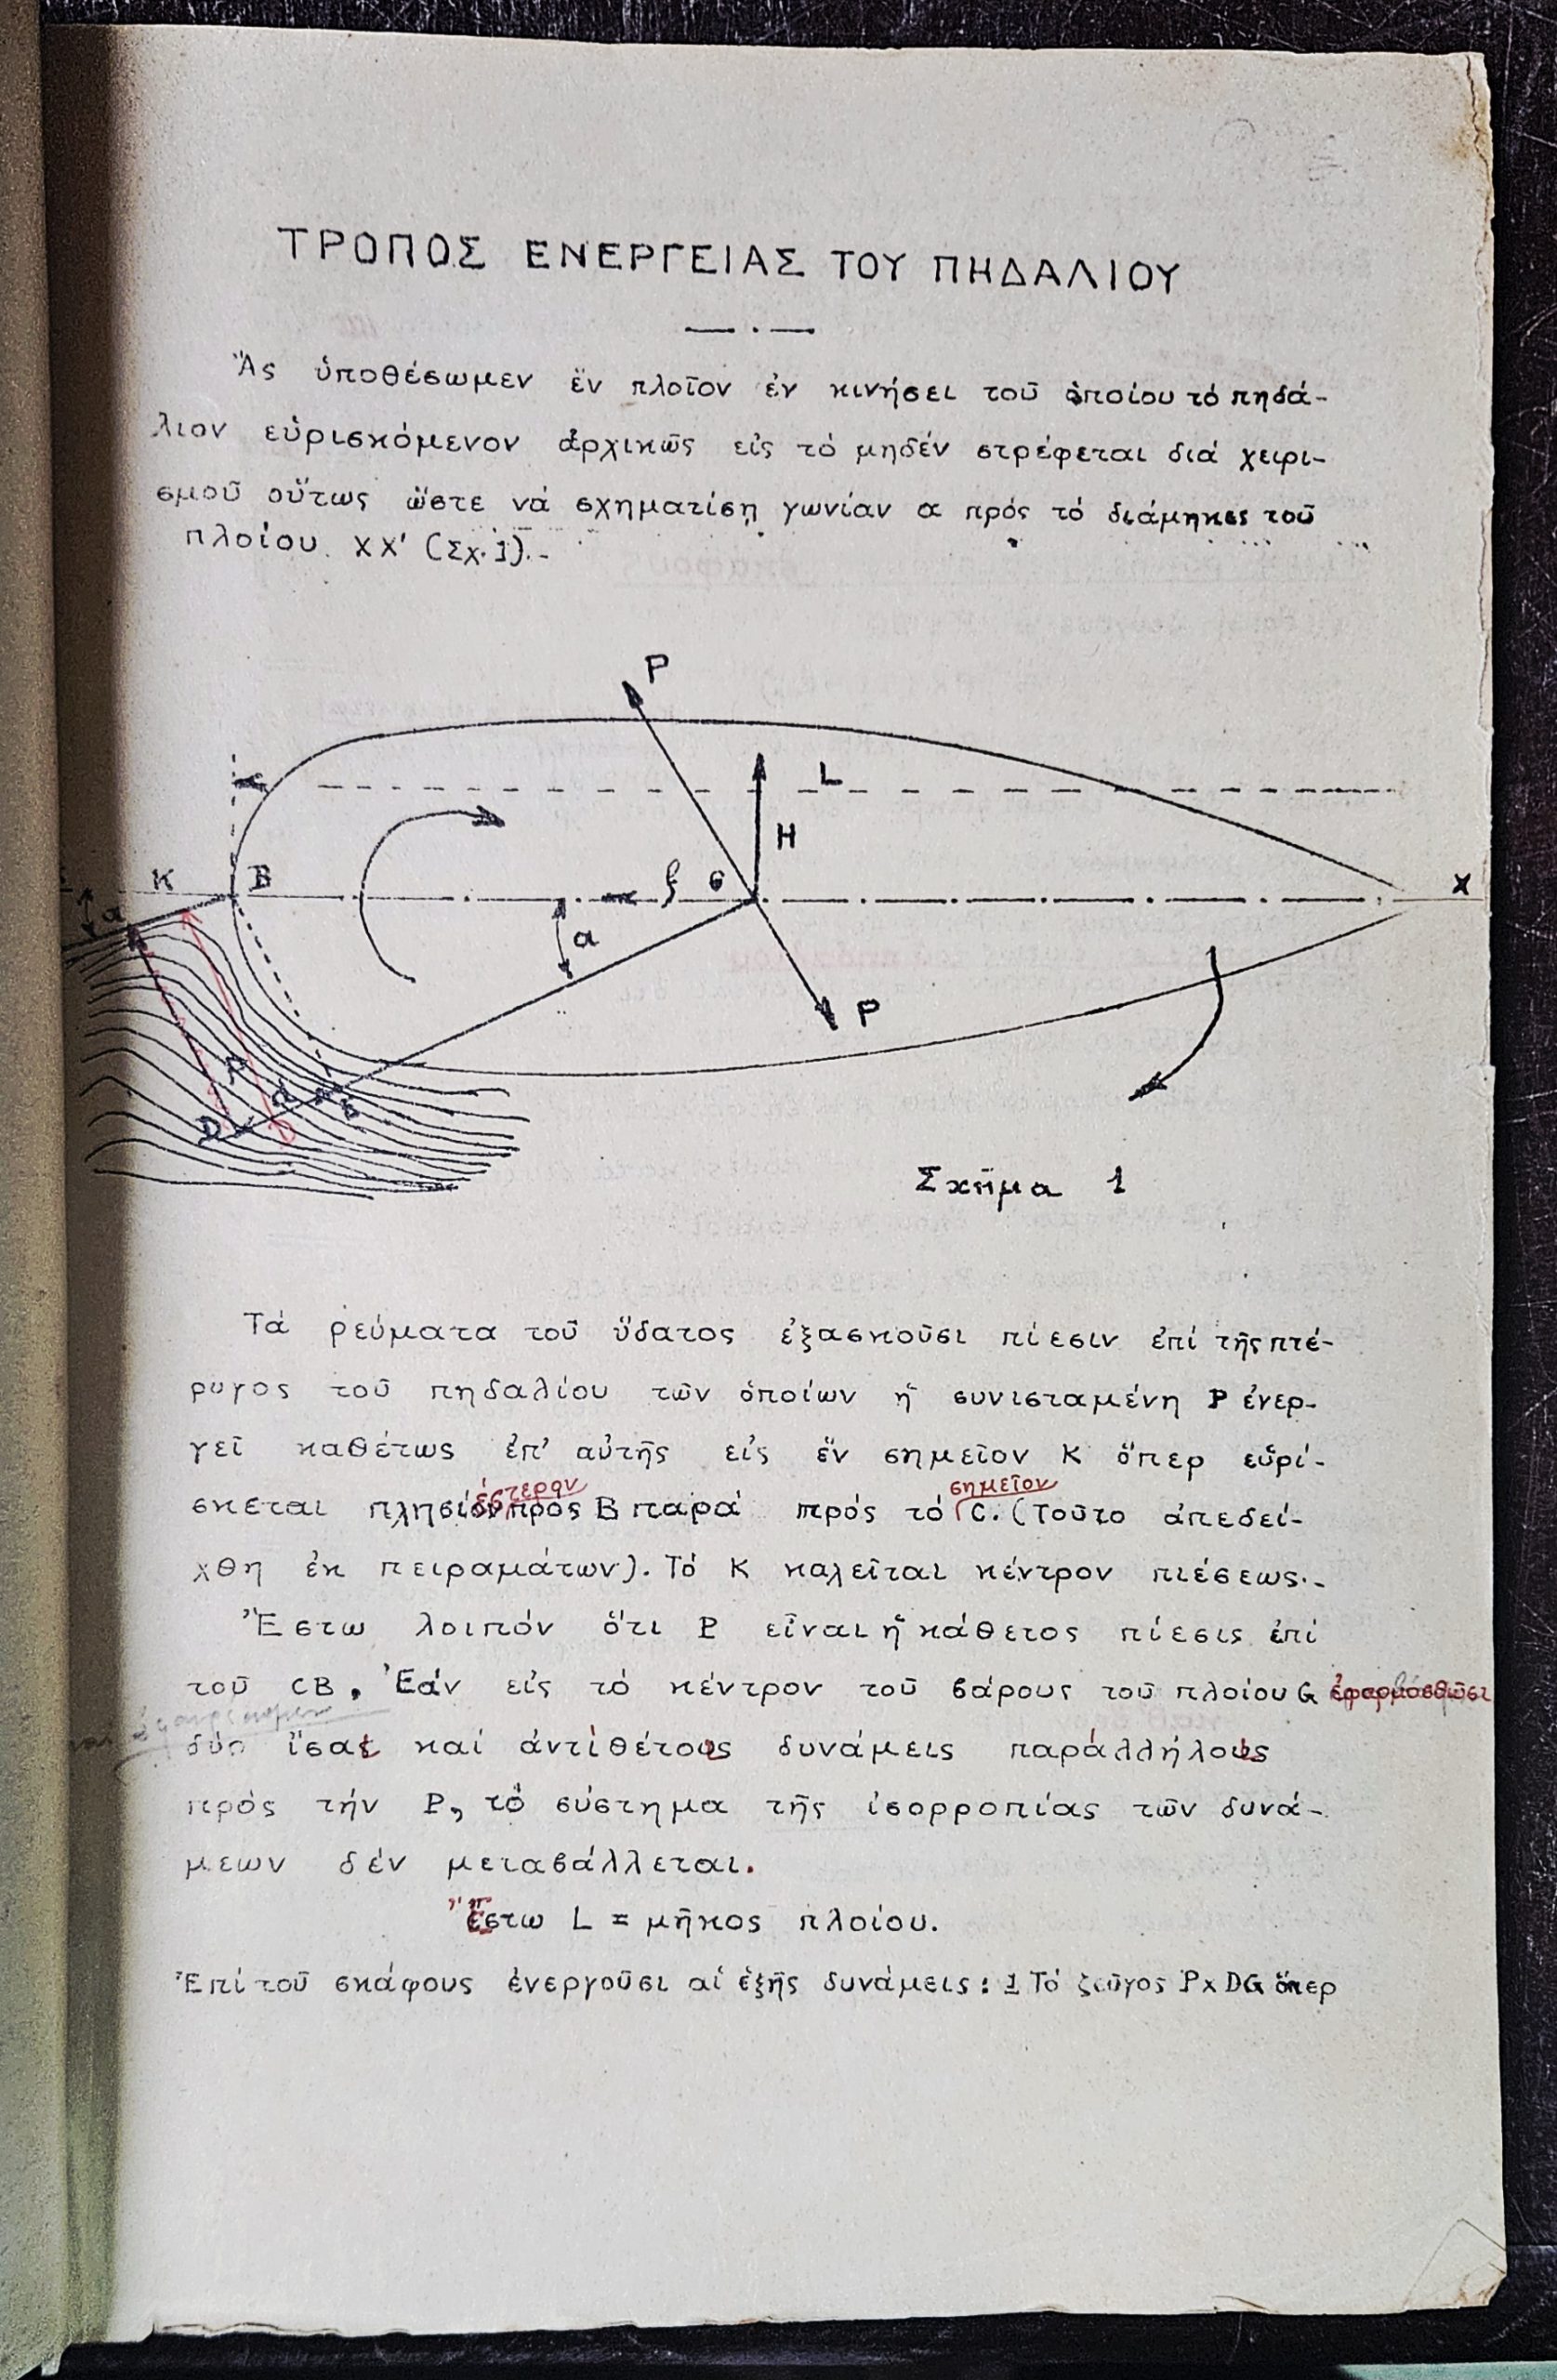 ΤΡΟΠΟΣ ΕΝΕΡΓΕΙΑΣ ΤΟΥ ΠΗΔΑΛΙΟΥ
Ἄς ὑποθέσωμεν ἕν πλοῖον ἐν κινήσει τοῦ ὁποίου τό πηδά-
λιον εὑρισκόμενον ἀρχικῶς εἰς τό μηδέν στρέφεται διά χειρι-
σμοῦ οὕτως ὥστε νά σχηματίσῃ γωνίαν α πρός τό διάμηκες τοῦ
πλοίου ΧΧ' (Σχ.1).-
P
L
H
K B ζ G X
α α
P
P
D d
D
Σχῆμα 1
Τά ρεύματα τοῦ ὕδατος ἐξασκοῦσι πίεσιν ἐπί τῆς πτέ-
ρυγος τοῦ πηδαλίου τῶν ὁποίων ἡ συνισταμένη P ἐνερ-
γεῖ καθέτως ἐπ' αὐτῆς εἰς ἕν σημεῖον Κ ὅπερ εὑρί-
έστερον σημεῖον
σκεται πλησιόν πρός Β παρά πρός τό C. (Τοῦτο ἀπεδεί-
χθη ἐκ πειραμάτων). Τό Κ καλεῖται κέντρον πιέσεως.-
Ἔστω λοιπόν ὅτι P εἶναι ἡ κάθετος πίεσις ἐπί
τοῦ CB. Ἐάν εἰς τό κέντρον τοῦ βάρους τοῦ πλοίου G ἐφαρμοσθῶσι
δύο ἴσαι καί ἀντιθέτους δυνάμεις παραλλήλους
πρός τήν P, τό σύστημα τῆς ἰσορροπίας τῶν δυνά-
μεων δέν μεταβάλλεται.
Ἔστω L = μῆκος πλοίου.
Ἐπί τοῦ σκάφους ἐνεργοῦσι αἱ ἑξῆς δυνάμεις: 1 Τό ζεῦγος PxDG ὅπερ